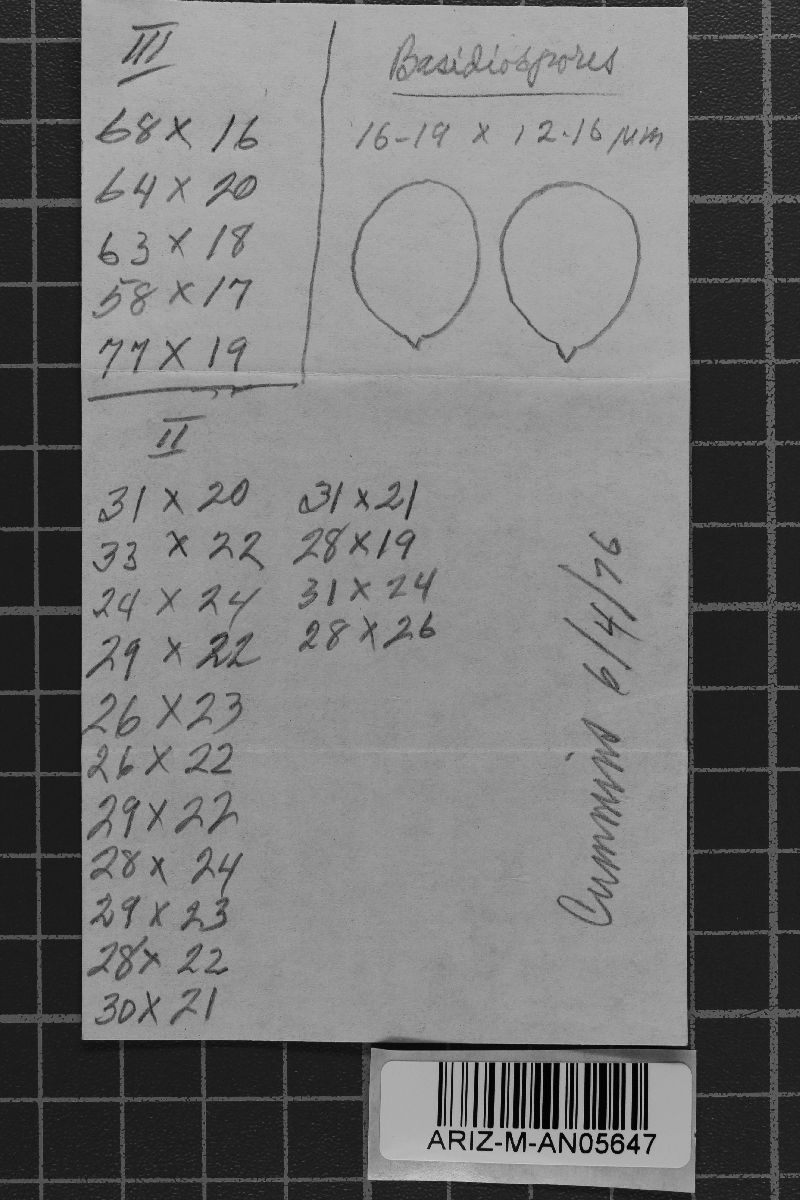 III
68 x 16
64 x 20
63 x 18
58 x 17
77 x 19
Basidiospores
16-19 x 12-16 µm
II
31 x 20
33 x 22
24 x 24
29 x 22
26 x 23
26 x 22
29 x 22
28 x 24
29 x 23
28 x 22
30 x 21
31 x 21
28 x 19
31 x 24
28 x 26
Cummins 6/4/76
ARIZ-M-AN05647